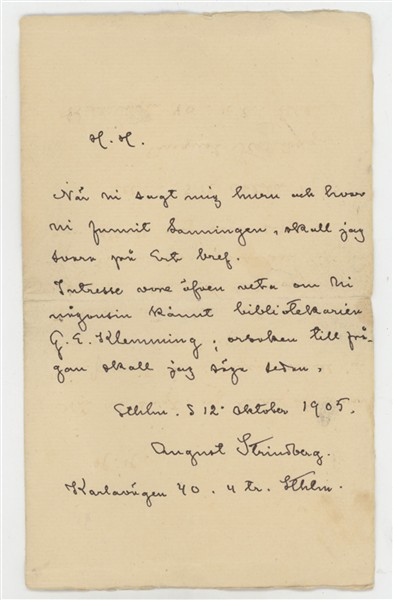 H. H.
När ni sagt mig huru och hvar
ni funnit Sanningen, skall jag
svara på Ert bref.
Intresse vore äfven veta om Ni
någonsin känt bibliotekarien
G. E. Klemming; orsaken till frå-
gan skall jag säga sedan.
Sthlm. d 12. Oktober 1905.
August Strindberg.
Karlavägen 40. 4 tr. Sthlm.